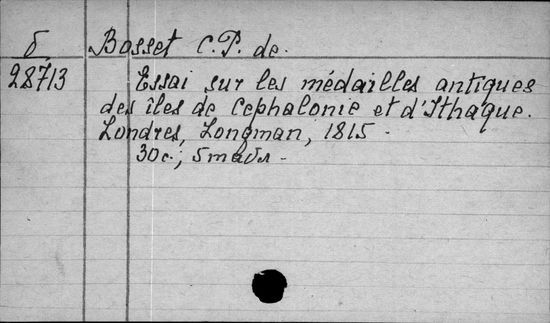 б Bosset C. P. de.
28713 Essai sur les médailles antiques
des îles de Cephalonie et d'Ithaque.
Londres, Longman, 1815.
30c.; 5